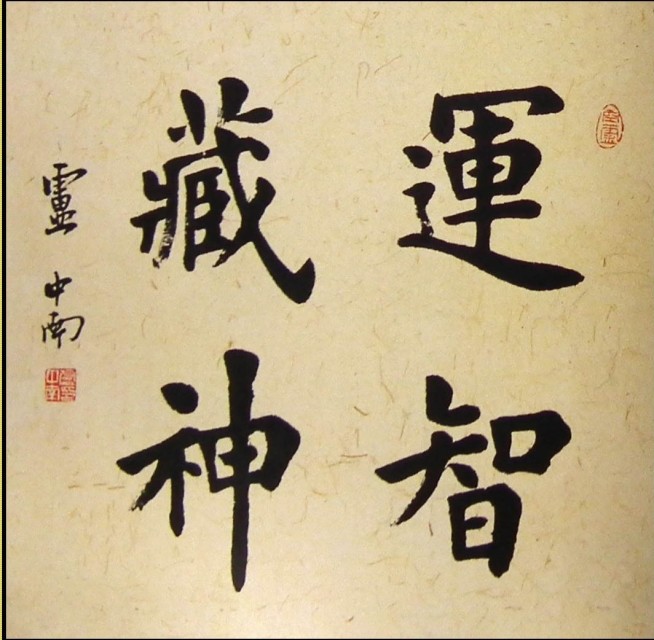 運智
藏神
靈 中南